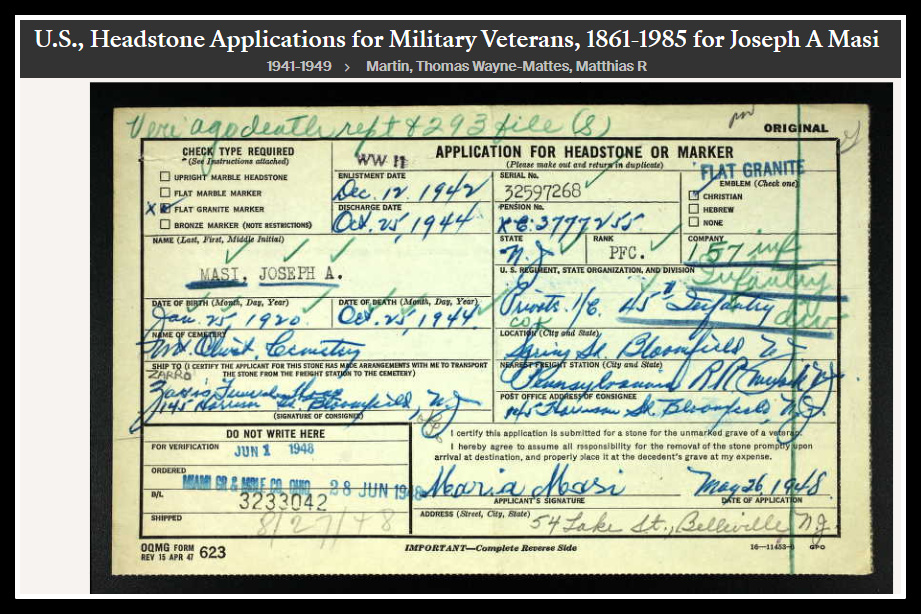 U.S., Headstone Applications for Military Veterans, 1861-1985 for Joseph A Masi
1941-1949 > Martin, Thomas Wayne-Mattes, Matthias R
death rept & 293 file (s)
ORIGINAL
CHECK TYPE REQUIRED
(See Instructions attached)
UPRIGHT MARBLE HEADSTONE
FLAT MARBLE MARKER
X FLAT GRANITE MARKER
BRONZE MARKER (NOTE RESTRICTIONS)
WW II
ENLISTMENT DATE
Dec. 12, 1942
DISCHARGE DATE
Oct. 25, 1944
APPLICATION FOR HEADSTONE OR MARKER
(Please make out and return in duplicate)
SERIAL No.
32597268
PENSION No.
XC. 3777255
FLAT GRANITE
EMBLEM (Check one)
CHRISTIAN
HEBREW
NONE
NAME (Last, First, Middle Initial)
MASI, JOSEPH A.
STATE
N.J.
RANK
PFC.
COMPANY
157 inf
U. S. REGIMENT, STATE ORGANIZATION, AND DIVISION
Infantry
Private 1/C. 45th Infantry div
DATE OF BIRTH (Month, Day, Year)
Jan. 25, 1920
DATE OF DEATH (Month, Day, Year)
Oct. 25, 1944
NAME OF CEMETERY
Mt. Olivet Cemetery
LOCATION (City and State)
Spring St. Bloomfield N.J.
SHIP TO (I CERTIFY THE APPLICANT FOR THIS STONE HAS MADE ARRANGEMENTS WITH ME TO TRANSPORT
THE STONE FROM THE FREIGHT STATION TO THE CEMETERY)
ZARRO
Zarro Funeral Home
145 Harrison St. Bloomfield, N.J.
(SIGNATURE OF CONSIGNEE)
NEAREST FREIGHT STATION (City and State)
Pennsylvania R.R.
POST OFFICE ADDRESS OF CONSIGNEE
145 Harrison St. Bloomfield, N.J.
DO NOT WRITE HERE
FOR VERIFICATION
JUN 1 1948
ORDERED
MIAMI GR & MBLE CO. OHIO 28 JUN 1948
B/L
3233042
SHIPPED
8/27/48
I certify this application is submitted for a stone for the unmarked grave of a veteran.
I hereby agree to assume all responsibility for the removal of the stone promptly upon
arrival at destination, and properly place it at the decedent's grave at my expense.
Maria Masi May 26, 1948
APPLICANT'S SIGNATURE
DATE OF APPLICATION
ADDRESS (Street, City, State)
54 Lake St., Belleville, N.J.
OQMG FORM 623
REV 15 APR 47
IMPORTANT—Complete Reverse Side
GPO